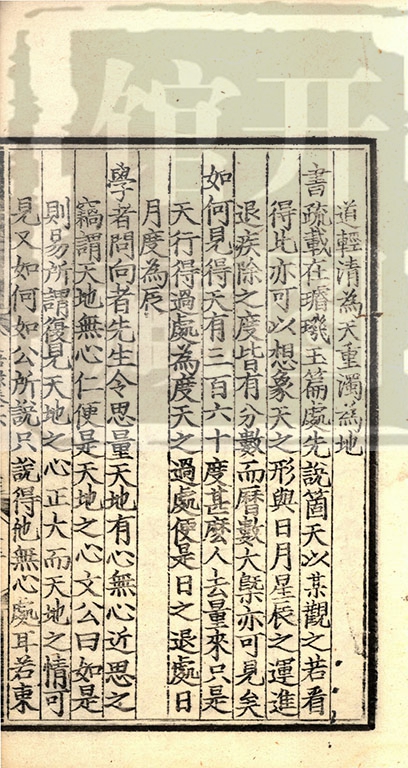 道輕清為天重濁爲地
書疏載在璿璣玉篇處先說箇天以某觀之若看
得此亦可以想象天之形與日月星辰之運進
退疾除之度皆有分數而曆數大槩亦可見矣
如何見得天有三百六十度甚麽人去量來只是
天行得過處為度天之過處便是日之退處日
月度為辰
學者問向者先生令思量天地有心無心近思之
竊謂天地無心仁便是天地之心文公曰如是
則易所謂復見天地之心正大而天地之情可
見又如何如公所說只說得他無心處耳若東